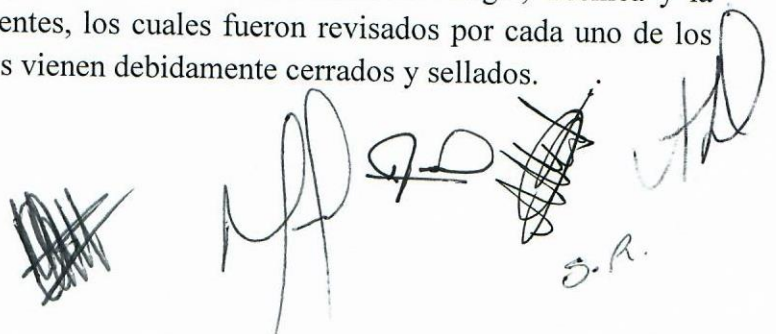 entes, los cuales fueron revisados por cada uno de los
s vienen debidamente cerrados y sellados.
S.R.